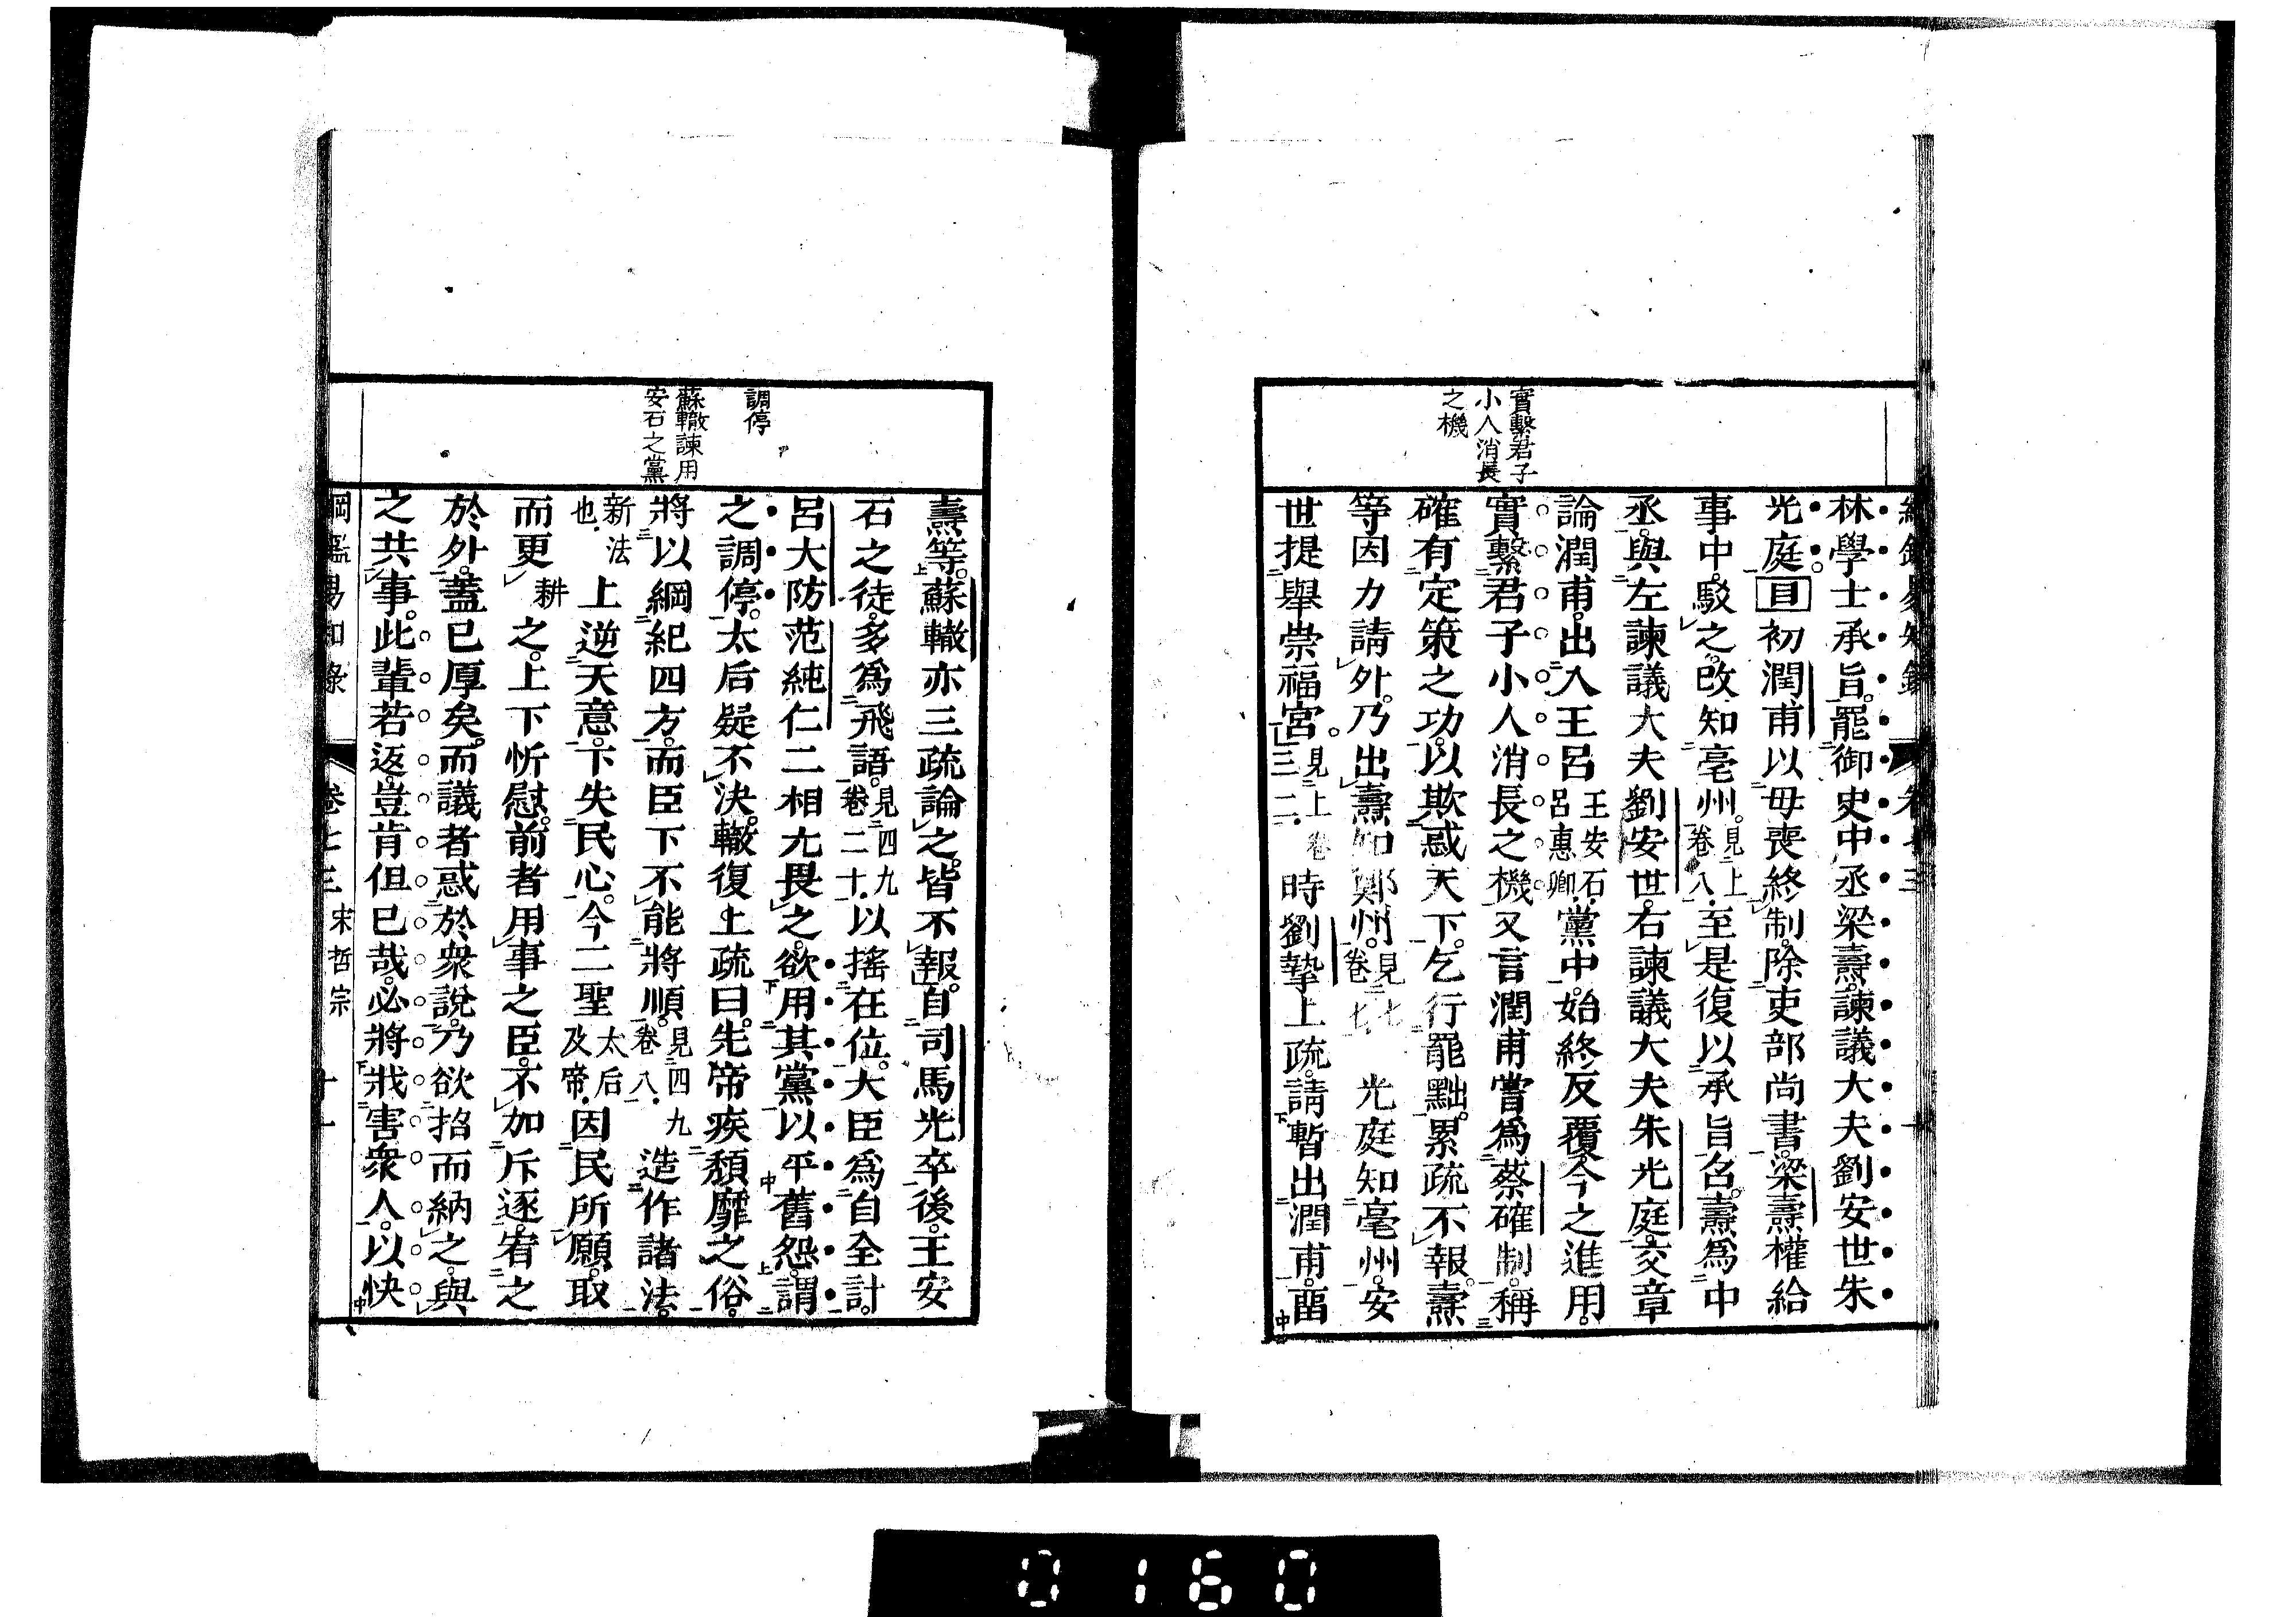 實繫君子
小人消長
之機
林學士承旨。罷御史中丞梁燾。諫議大夫劉安世朱
光庭。目初潤甫以母喪終制。除吏部尚書。梁燾權給
事中。駁之。改知亳州。見上卷八。至是復以承旨召。燾爲中
丞。與左諫議大夫劉安世。右諫議大夫朱光庭。交章
論潤甫。出入王呂王安石呂惠卿。黨中。始終反覆。今之進用。
實繫君子小人消長之機。又言潤甫嘗爲蔡確制。稱
確有定策之功。以欺惑天下。乞行罷黜。累疏不報。燾
等因力請外。乃出燾知鄭州。見七卷七。光庭知亳州。安
世提舉崇福宮。見上卷三二。時劉摯上疏。請暫出潤甫。畱
調停
蘇轍諫用
安石之黨
燾等。蘇轍亦三疏論之。皆不報。自司馬光卒後。王安
石之徒。多爲飛語。見四九卷二十。以搖在位。大臣爲自全計。
呂大防范純仁二相尤畏之。欲用其黨以平舊怨。謂
之調停。太后疑不決。轍復上疏曰。先帝疾頹靡之俗。
將以綱紀四方。而臣下不能將順。見四九卷八。造作諸法。
新法也。上逆天意。下失民心。今二聖太后及帝。因民所願。取
而更耕之。上下忻慰。前者用事之臣。不加斥逐。宥之
於外。蓋已厚矣。而議者惑於衆說。乃欲招而納之。與
之共事。此輩若返。豈肯但已哉。必將戕害衆人。以快
綱鑑易知錄 卷七三 宋哲宗 十一
0160